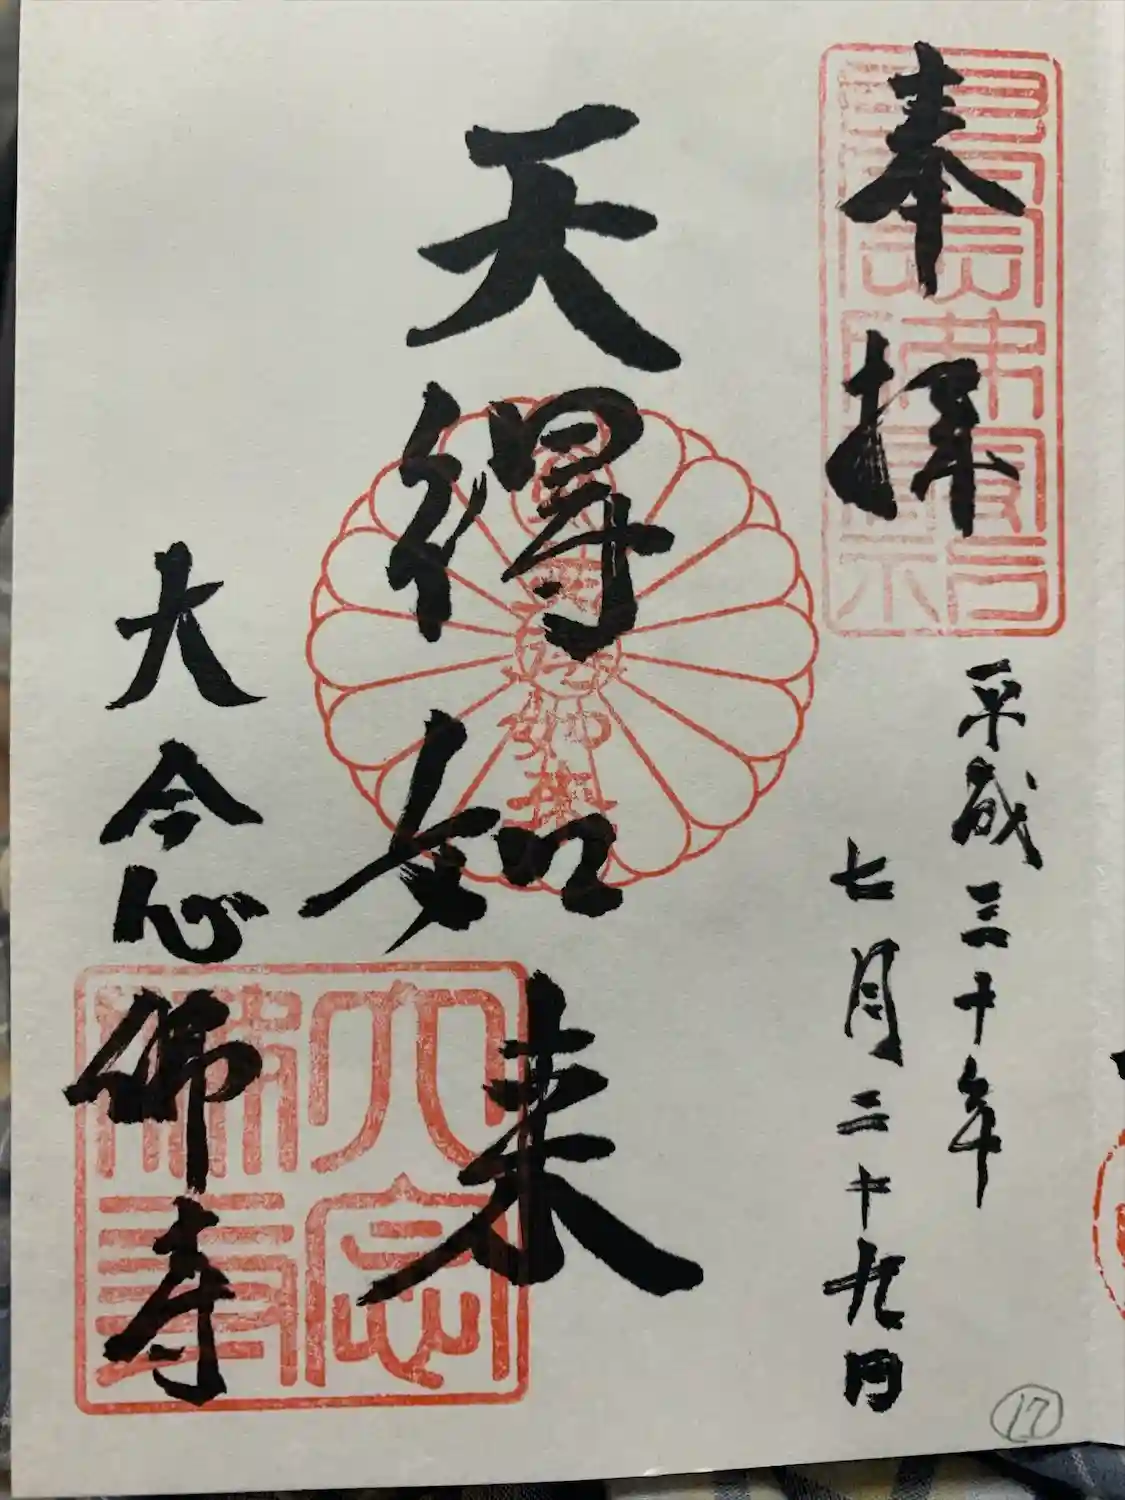 奉拝
平成三十年
七月二十九日
天得如来
大念佛寺
大念佛寺
17